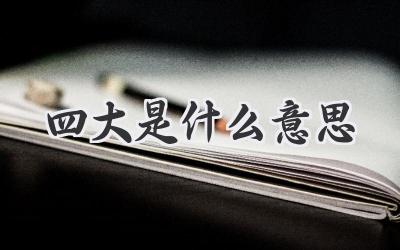 四大是什么意思